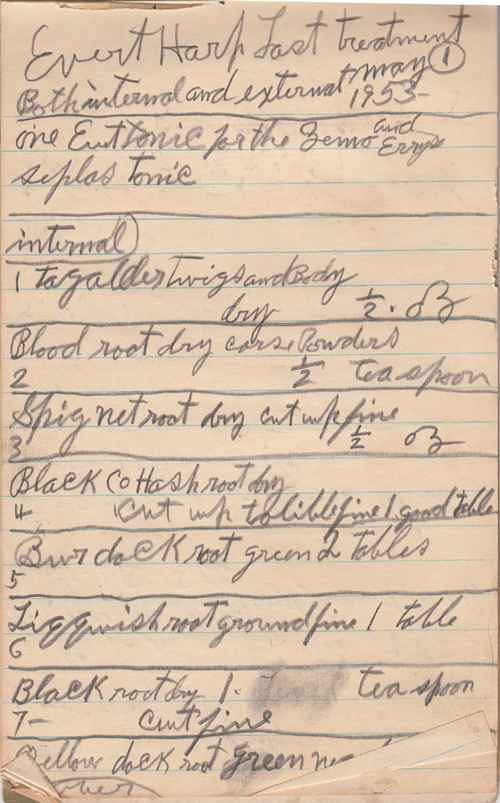 Evert Harp Last treatment
may 1
Both internal and external 1953-
one Eut tonic for the Zemo and Erry
seplas tonic
internal)
1 tagalder twigs and Body
dry 1/2 . oz
Blood root dry corse Powders
2 1/2 tea spoon
Spignet root dry cut up fine
3 1/2 oz
Black Co Hash root dry
4 cut up tolible fine 1 good table
Burdock root green 2 tables
5
Liqqwish root ground fine 1 table
6
Black root dry 1. tea spoon
7- cut fine
Yellow dock root green